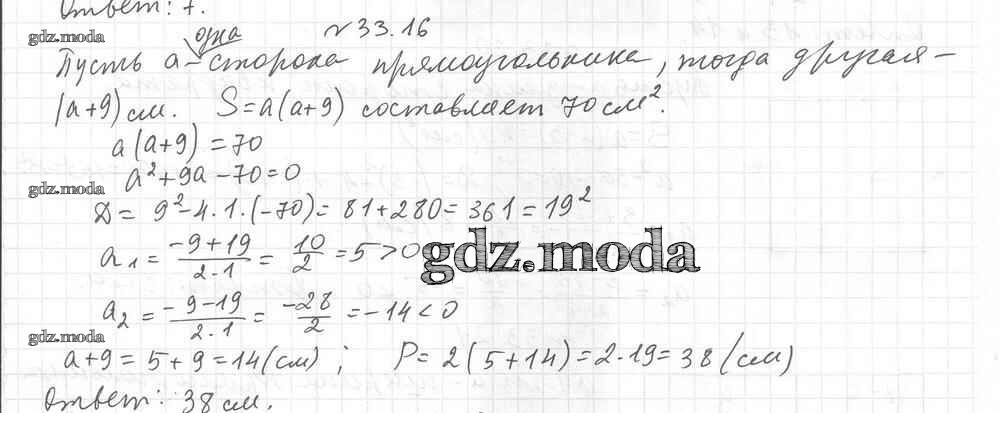 Ответ: 7.
одна № 33.16
gdz.moda
Пусть a - сторона прямоугольника, тогда другая -
(a+9) см. S=a(a+9) составляет 70 см².
a(a+9) = 70
a²+9a-70=0
gdz.moda
D = 9²-4·1·(-70)= 81+280= 361=19²
a₁ = (-9+19)/(2·1) = 10/2 = 5 > 0
gdz.moda
a₂ = (-9-19)/(2·1) = -28/2 = -14 < 0
gdz.moda
a+9 = 5+9 = 14 (см) ; P= 2(5+14)=2·19=38 (см)
Ответ: 38 см.